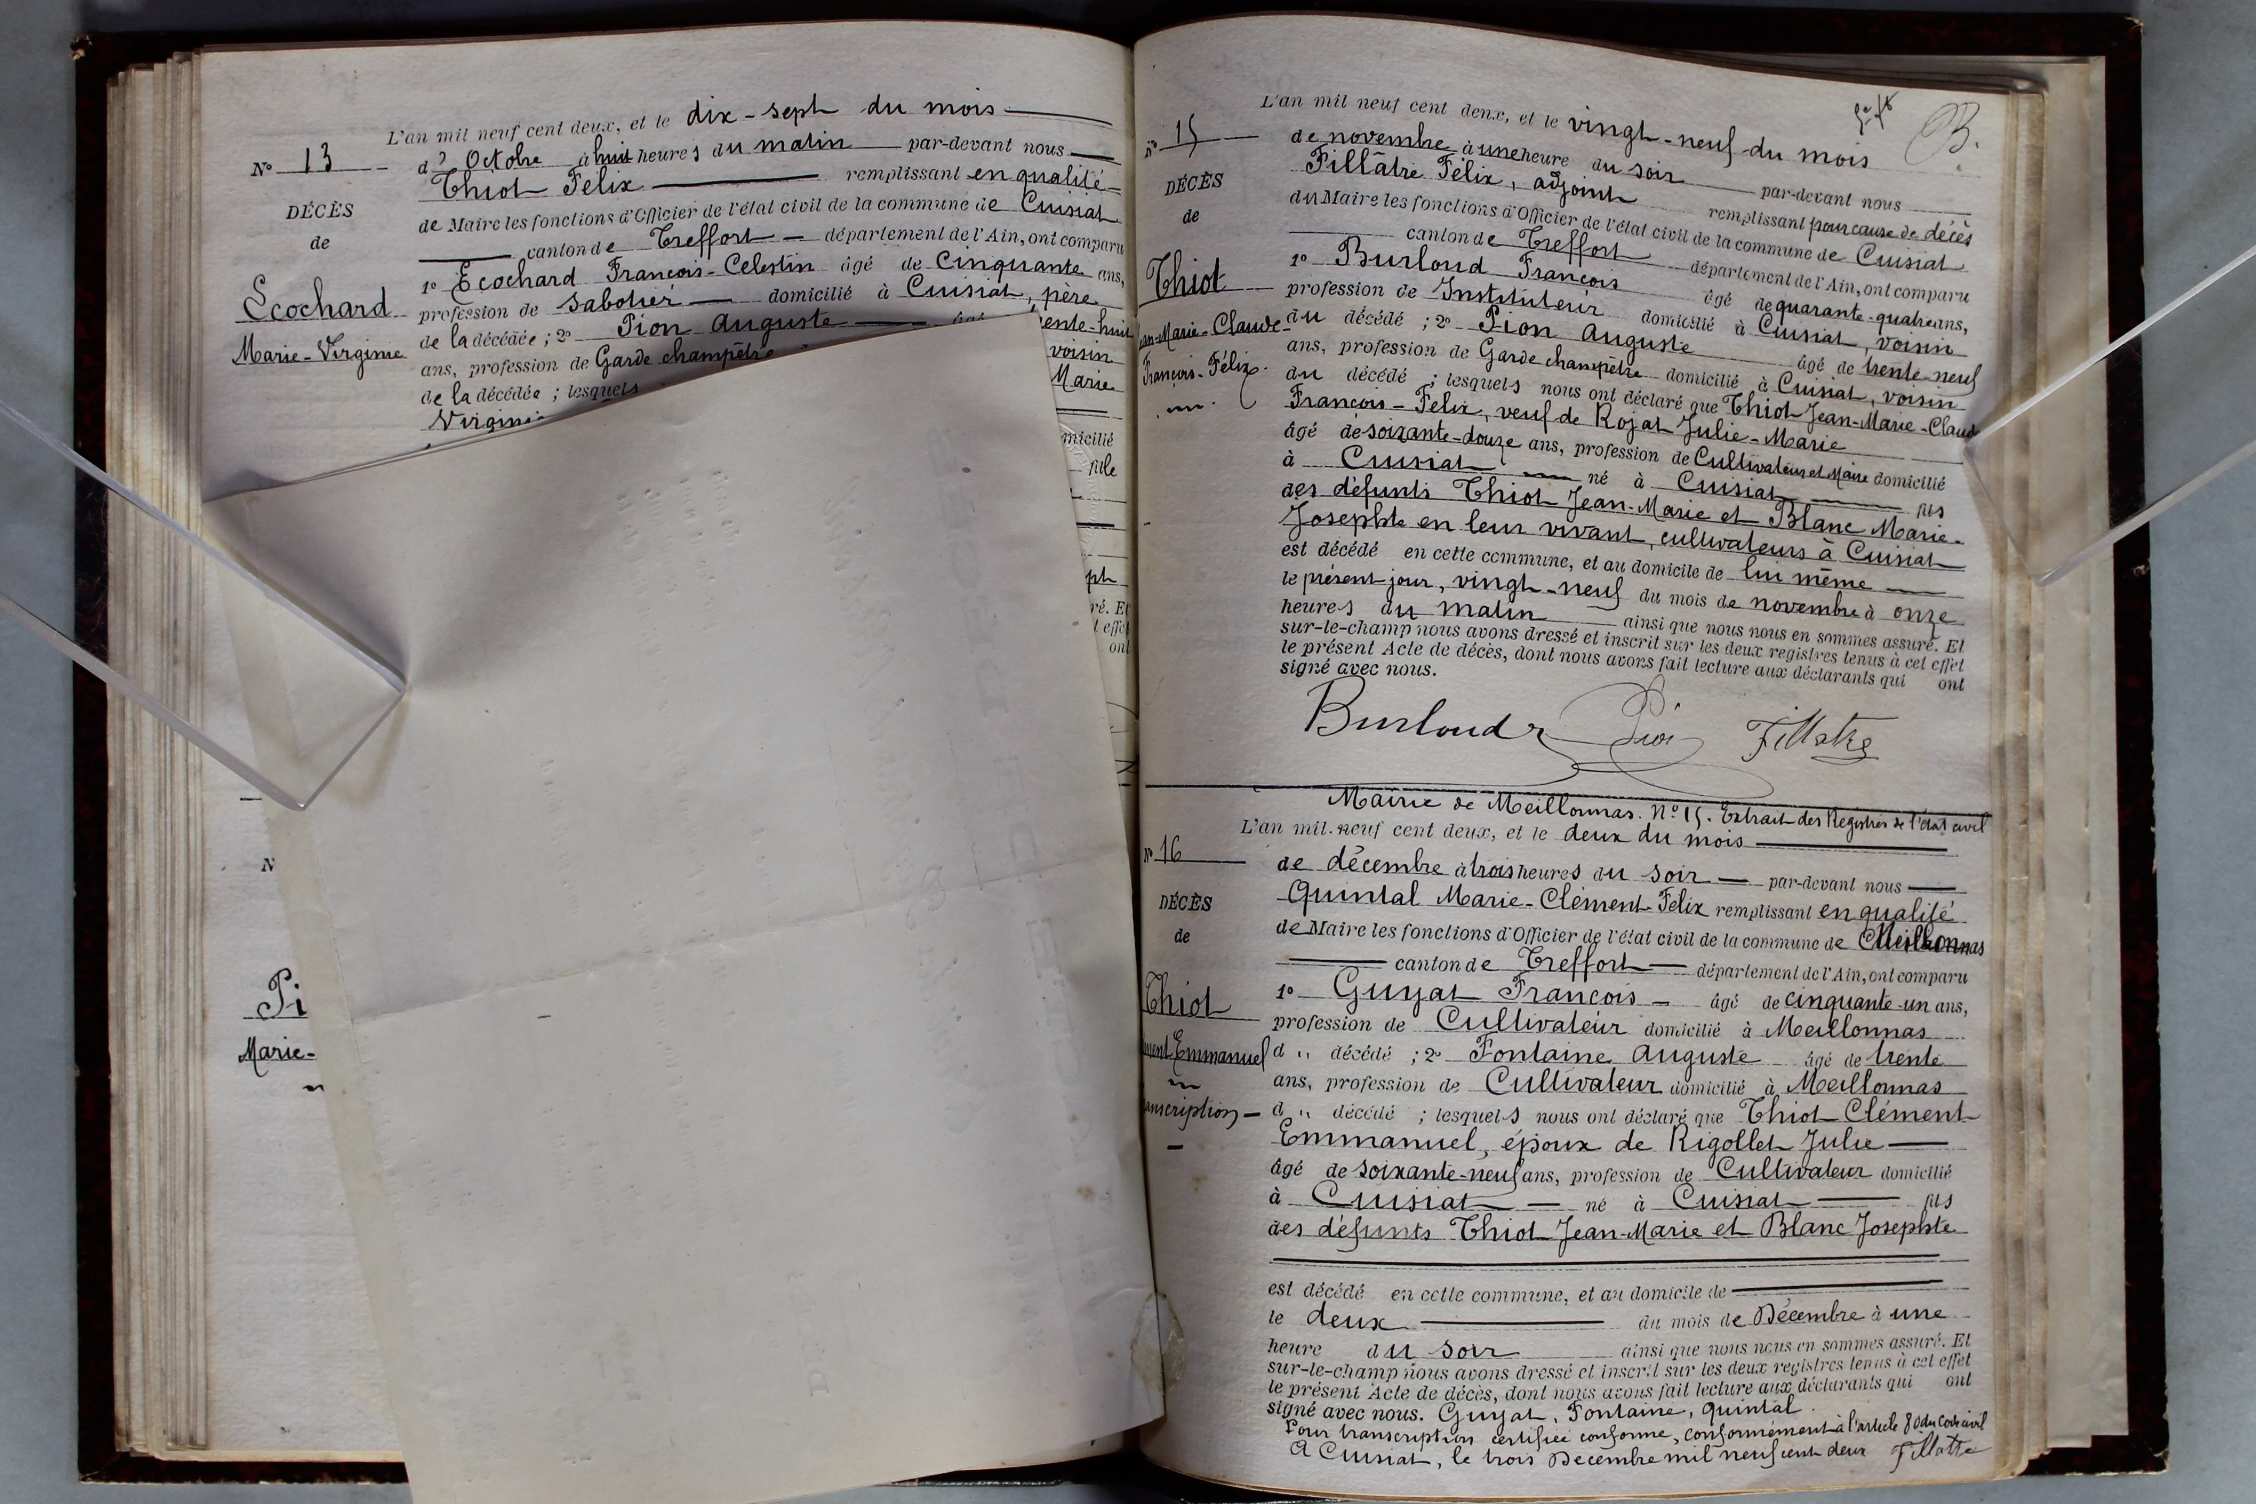 L'an mil neuf cent deux, et le dix-sept du mois
N° 13
d' Octobre à huit heures du matin par-devant nous
Thiot Félix remplissant en qualité
DÉCÈS
de Maire les fonctions d'Officier de l'état civil de la commune de Cuisiat
de
canton de Treffort département de l'Ain, ont comparu
1° Ecochard François-Célestin âgé de cinquante ans,
Ecochard
profession de sabotier domicilié à Cuisiat, père
Marie-Virginie
de la décédée ; 2° Pion Auguste trente-huit
ans, profession de Garde champêtre voisin
de la décédée ; lesquels Marie
Virginie
micilié
fille
pt
ré. Et
t effet
ont
N
Pi
Marie-
L'an mil neuf cent deux, et le vingt-neuf du mois
B.
N° 15
de novembre à une heure du soir par-devant nous
Fillâtre Félix, adjoint remplissant pour cause de décès
DÉCÈS
du Maire les fonctions d'Officier de l'état civil de la commune de Cuisiat
de
canton de Treffort département de l'Ain, ont comparu
1° Burloud François âgé de quarante-quatre ans,
Thiot
profession de Instituteur domicilié à Cuisiat, voisin
an-Marie-Claude
du décédé ; 2° Pion Auguste âgé de trente-neuf
François-Félix.
ans, profession de Garde champêtre domicilié à Cuisiat, voisin
du décédé ; lesquels nous ont déclaré que Thiot Jean-Marie-Claude
François-Félix, veuf de Rojat Julie-Marie
âgé de soixante-douze ans, profession de Cultivateur et Maire domicilié
à Cuisiat né à Cuisiat fils
des défunts Thiot Jean-Marie et Blanc Marie-
Josephte en leur vivant, cultivateurs à Cuisiat
est décédé en cette commune, et au domicile de lui même
le présent jour, vingt-neuf du mois de novembre à onze
heures du matin ainsi que nous nous en sommes assuré. Et
sur-le-champ nous avons dressé et inscrit sur les deux registres tenus à cet effet
le présent Acte de décès, dont nous avons fait lecture aux déclarants qui ont
signé avec nous.
Burloud Pion Fillatre
Mairie de Meillonnas. N° 15. Extrait des Registres de l'état civil
L'an mil neuf cent deux, et le deux du mois
N° 16
de décembre à trois heures du soir par-devant nous
Quintal Marie-Clément-Félix remplissant en qualité
DÉCÈS
de Maire les fonctions d'Officier de l'état civil de la commune de Meillonnas
de
canton de Treffort département de l'Ain, ont comparu
1° Guyat François âgé de cinquante-un ans,
Thiot
profession de Cultivateur domicilié à Meillonnas
ment Emmanuel
d " décédé ; 2° Fontaine Auguste âgé de trente
ans, profession de Cultivateur domicilié à Meillonnas
anscription
d " décédé ; lesquels nous ont déclaré que Thiot Clément
Emmanuel, époux de Rigollet Julie
âgé de soixante-neuf ans, profession de Cultivateur domicilié
à Cuisiat né à Cuisiat fils
des défunts Thiot Jean-Marie et Blanc Josephte
est décédé en cette commune, et au domicile de
le deux du mois de Décembre à une
heure du soir ainsi que nous nous en sommes assuré. Et
sur-le-champ nous avons dressé et inscrit sur les deux registres tenus à cet effet
le présent Acte de décès, dont nous avons fait lecture aux déclarants qui ont
signé avec nous. Guyat, Fontaine, Quintal.
Pour transcription certifiée conforme, conformément à l'article 80 du Code civil
A Cuisiat, le trois Décembre mil neuf cent deux Fillatre